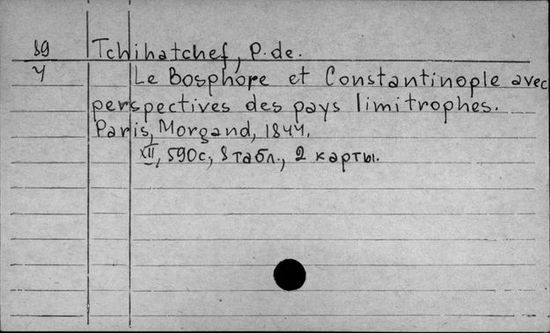 89 Tchihatchef, P. de.
Ч Le Bosphore et Constantinople avec
perspectives des pays limitrophes.
Paris, Morgand, 1844.
XII, 590 с., 8 табл., 2 карты.